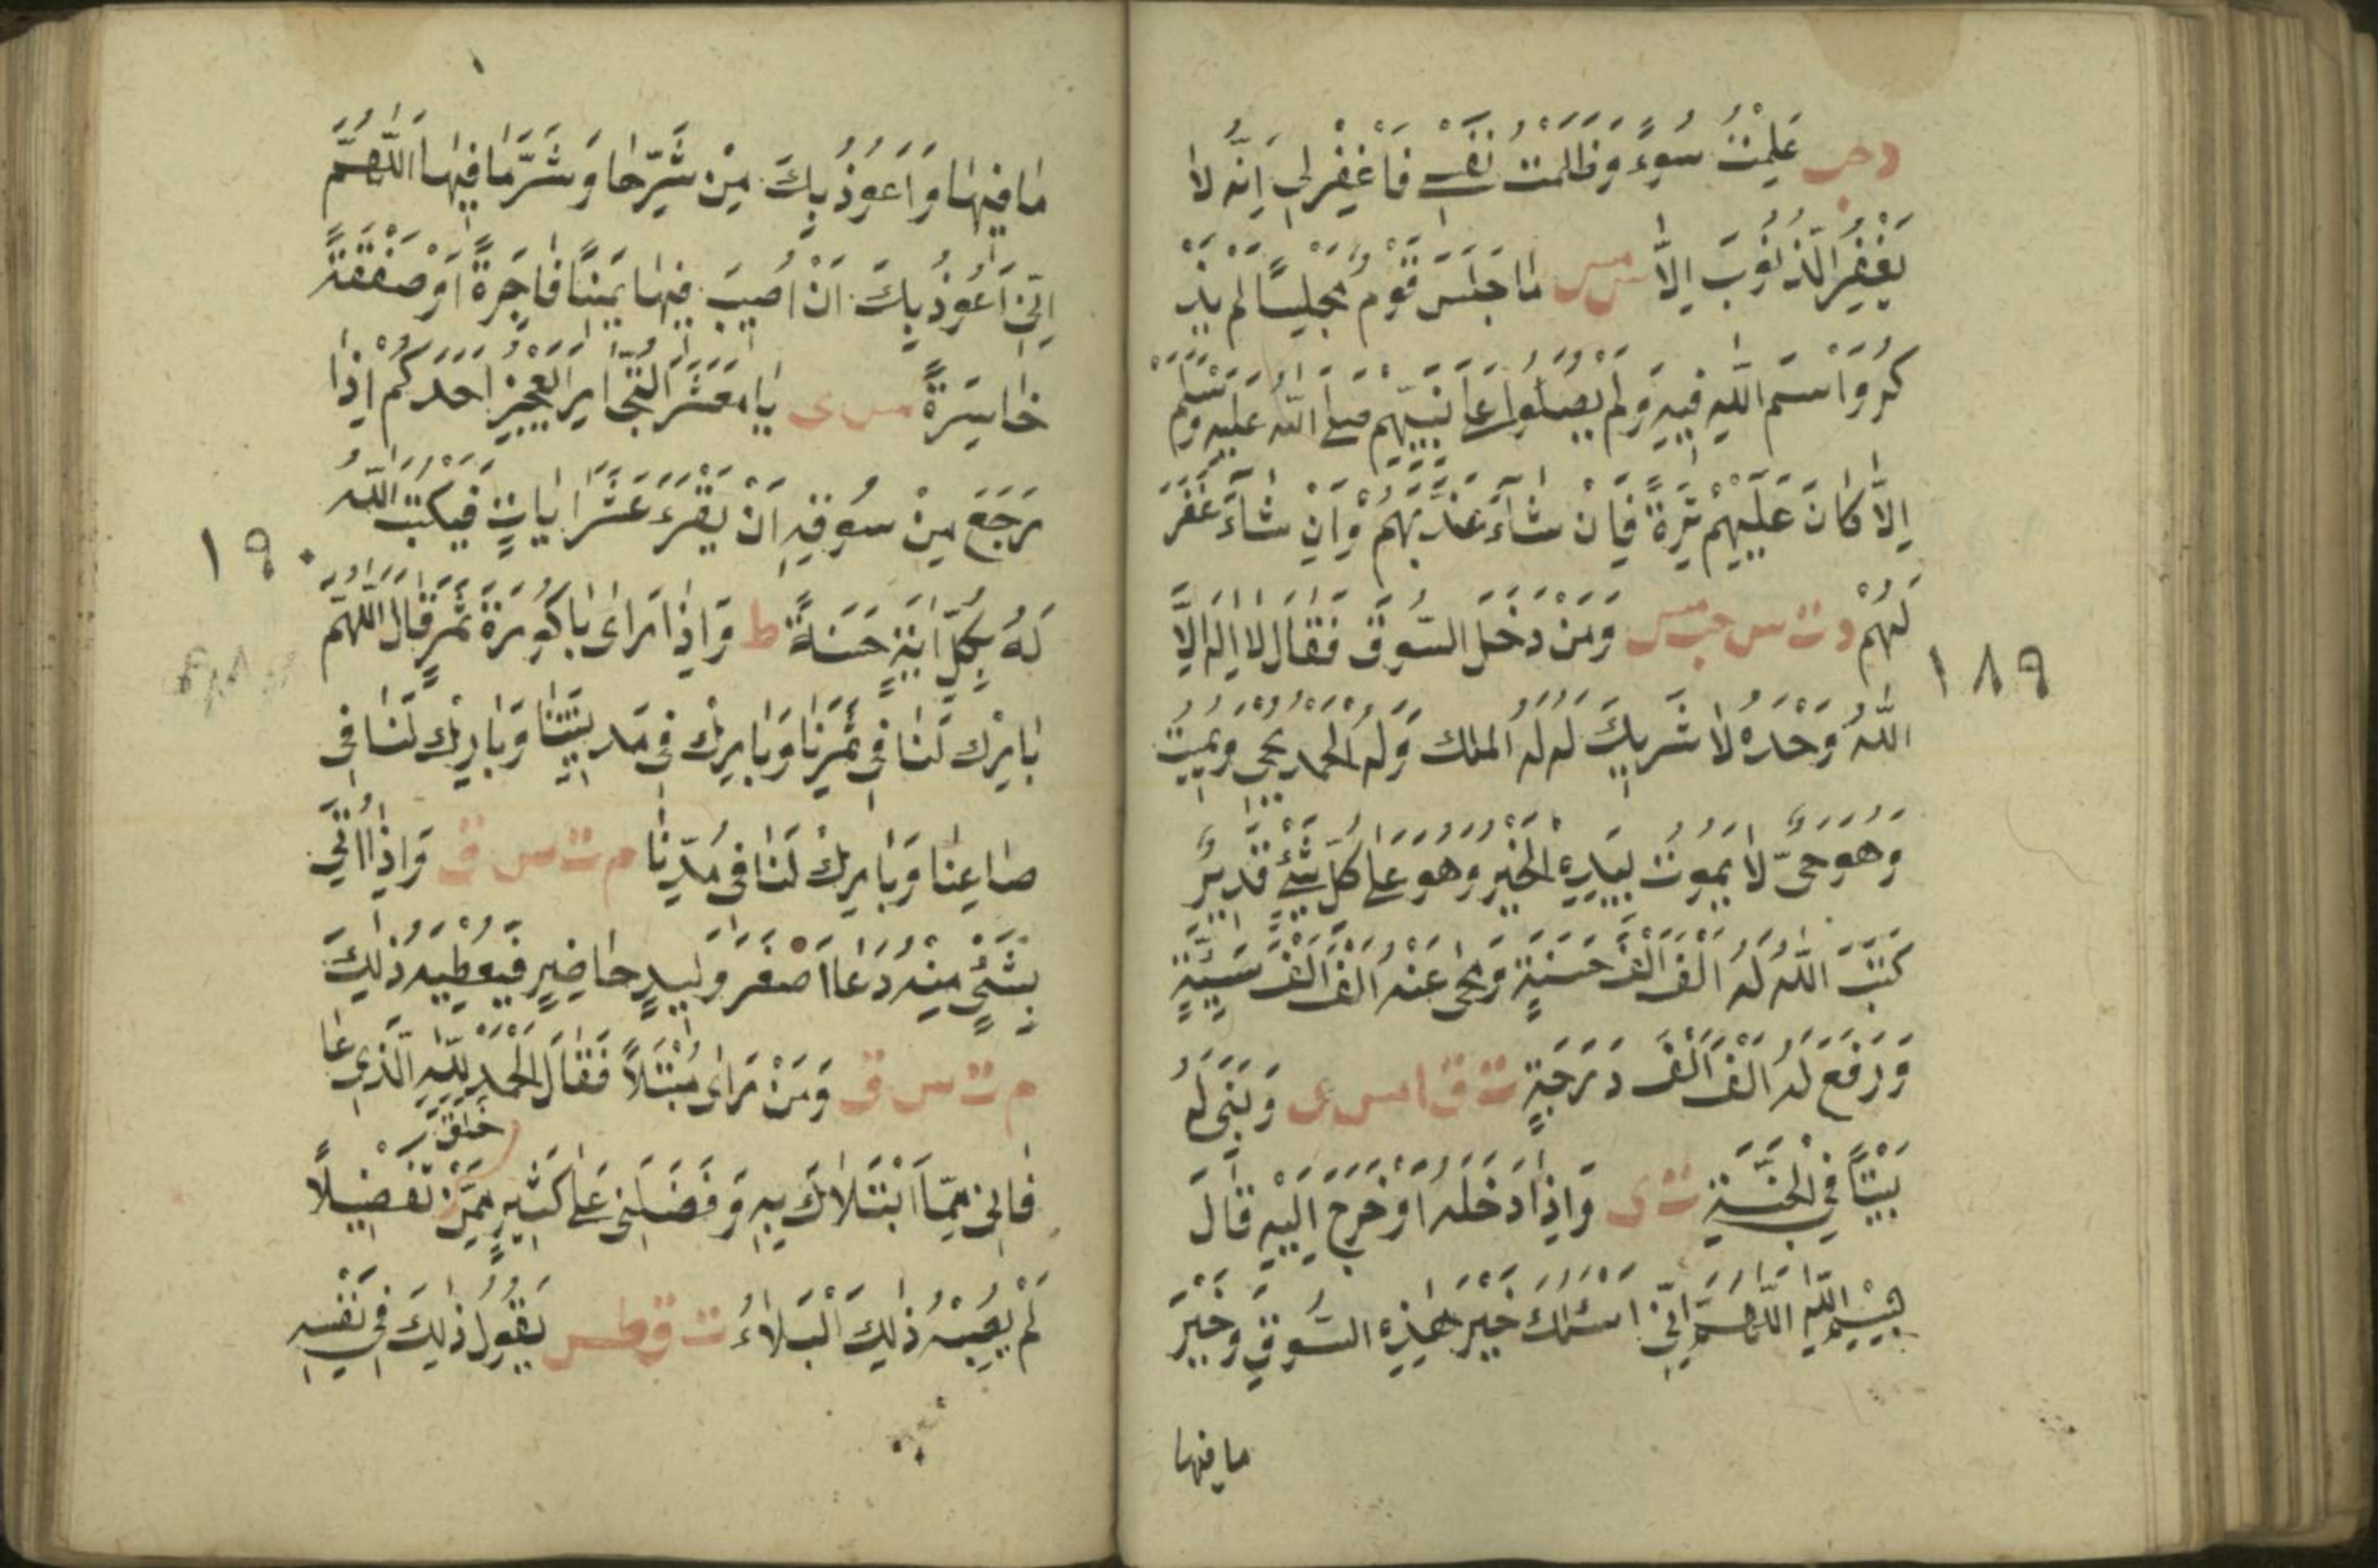 دحب عَلِمْتُ سُوءً وَظَلَمْتُ نَفْسِي فَاغْفِرْلِي اِنَّهُ لَا
يَغْفِرُ الذُّنُوبَ اِلَّا س مس مَا جَلَسَ قَوْمٌ مَجْلِسًا لَمْ يَذْ
كُرُوا اسْمَ اللّٰهِ فِيهِ وَلَمْ يُصَلُّوا عَلَى نَبِيِّهِمْ صَلَّى اللّٰهُ عَلَيْهِ وَسَلَّمْ
اِلَّا كَانَ عَلَيْهِمْ تِرَةً فَاِنْ شَآءَ عَذَّبَهُمْ وَاِنْ شَآءَ غَفَرَ
لَهُمْ د ت س حب مس وَمَنْ دَخَلَ السُّوقَ فَقَالَ لَا اِلٰهَ اِلَّا
١٨٩
اللّٰهُ وَحْدَهُ لَا شَرِيكَ لَهُ لَهُ الْمُلْكُ وَلَهُ الْحَمْدُ يُحْيِي وَيُمِيتُ
وَهُوَ حَيٌّ لَا يَمُوتُ بِيَدِهِ الْخَيْرُ وَهُوَ عَلَى كُلِّ شَيْءٍ قَدِيرٌ
كَتَبَ اللّٰهُ لَهُ اَلْفَ اَلْفَ حَسَنَةٍ وَمَحَى عَنْهُ اَلْفَ اَلْفَ سَيِّئَةٍ
وَرَفَعَ لَهُ اَلْفَ اَلْفَ دَرَجَةٍ ت ق ا مس ى وَبَنَى لَهُ
بَيْتًا فِي الْجَنَّةِ ت ى وَاِذَا دَخَلَهُ اَوْ خَرَجَ اِلَيْهِ قَالَ
بِسْمِ اللّٰهِ اللّٰهُمَّ اِنِّي اَسْئَلُكَ خَيْرَ هٰذِهِ السُّوقِ وَخَيْرَ
ما فيها
مَا فِيهَا وَاَعُوذُ بِكَ مِنْ شَرِّهَا وَشَرِّ مَا فِيهَا اَللّٰهُمَّ
اِنِّي اَعُوذُ بِكَ اَنْ اُصِيبَ فِيهَا يَمِينًا فَاجِرَةً اَوْ صَفْقَةً
خَاسِرَةً مس ى يَا مَعْشَرَ التُّجَّارِ اَيَعْجِزُ اَحَدُكُمْ اِذَا
رَجَعَ مِنْ سُوقِهِ اَنْ يَقْرَءَ عَشْرَ اٰيَاتٍ فَيَكْتُبَ اللّٰهُ
١٩٠
لَهُ بِكُلِّ اٰيَةٍ حَسَنَةً ط وَاِذَا رَاٰى بَاكُورَةَ ثَمَرٍ قَالَ اَللّٰهُمَّ
بَارِكْ لَنَا فِي ثَمَرِنَا وَبَارِكْ فِي مَدِينَتِنَا وَبَارِكْ لَنَا فِي
صَاعِنَا وَبَارِكْ لَنَا فِي مُدِّنَا م ت س ق وَاِذَا اُتِيَ
بِشَيْءٍ مِنْهُ دَعَا اَصْغَرَ وَلِيدٍ حَاضِرٍ فَيُعْطِيهِ ذٰلِكَ
م ت س ق وَمَنْ رَاٰى مُبْتَلًا فَقَالَ الْحَمْدُ لِلّٰهِ الَّذِي عَا
فَانِي مِمَّا ابْتَلَاكَ بِهِ وَفَضَّلَنِي عَلَى كَثِيرٍ مِمَّنْ خَلَقَ تَفْضِيلًا
لَمْ يُصِبْهُ ذٰلِكَ الْبَلَاءُ ت ق طس يَقُولُ ذٰلِكَ فِي نَفْسِهِ